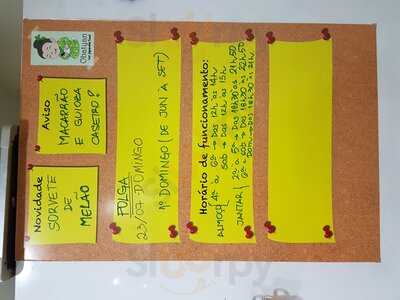 Obaiyan
Aviso
MACARRÃO
E GUIOZA
CASEIRO?
Novidade
SORVETE
DE
MELÃO
FOLGA
23/07 DOMINGO
1º DOMINGO (DE JUN À SET)
Horário de funcionamento:
ALMOÇO 4ª à 6ª → Das 12h às 14h
Sáb → Das 12h às 15h
JANTAR 2ª à 5ª → Das 18h30 às 21h50
6ª e Sáb → Das 18h30 às 22h50
Dom → Das 18h30 às 21h
Sluurpy